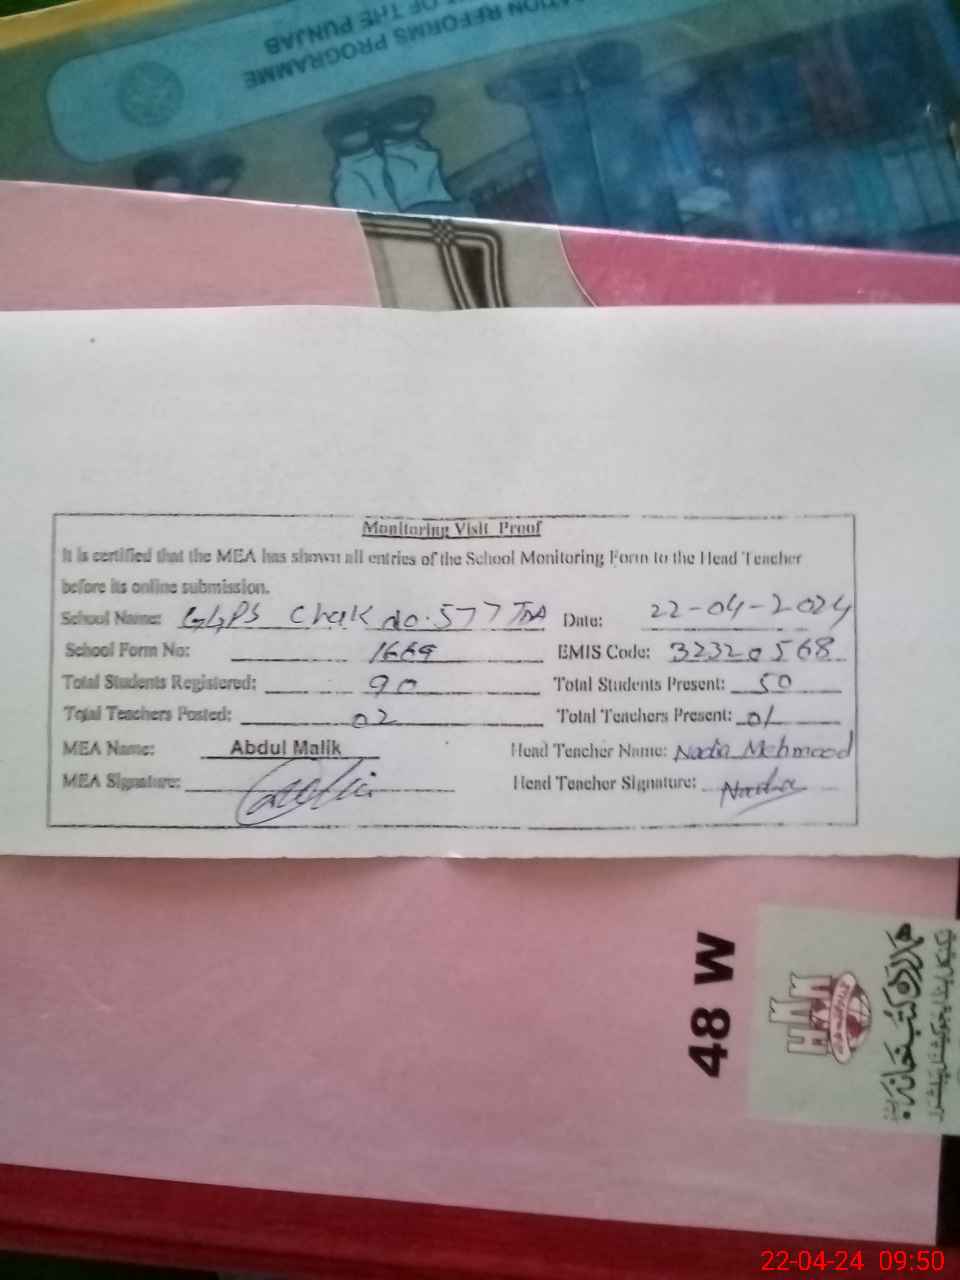 ATION REFORMS PROGRAMME
OF THE PUNJAB
Monitoring Visit Proof
It is certified that the MEA has shown all entries of the School Monitoring Form to the Head Teacher
before its online submission.
School Name: GGPS Chak No. 577 TDA Date: 22-04-2024
School Form No: 1669 EMIS Code: 32320568
Total Students Registered: 90 Total Students Present: 50
Total Teachers Posted: 02 Total Teachers Present: 01
MEA Name: Abdul Malik Head Teacher Name: Nadia Mehmood
MEA Signature: Head Teacher Signature: Nadia
48 W
ہمدرد کتب خانہ
22-04-24 09:50